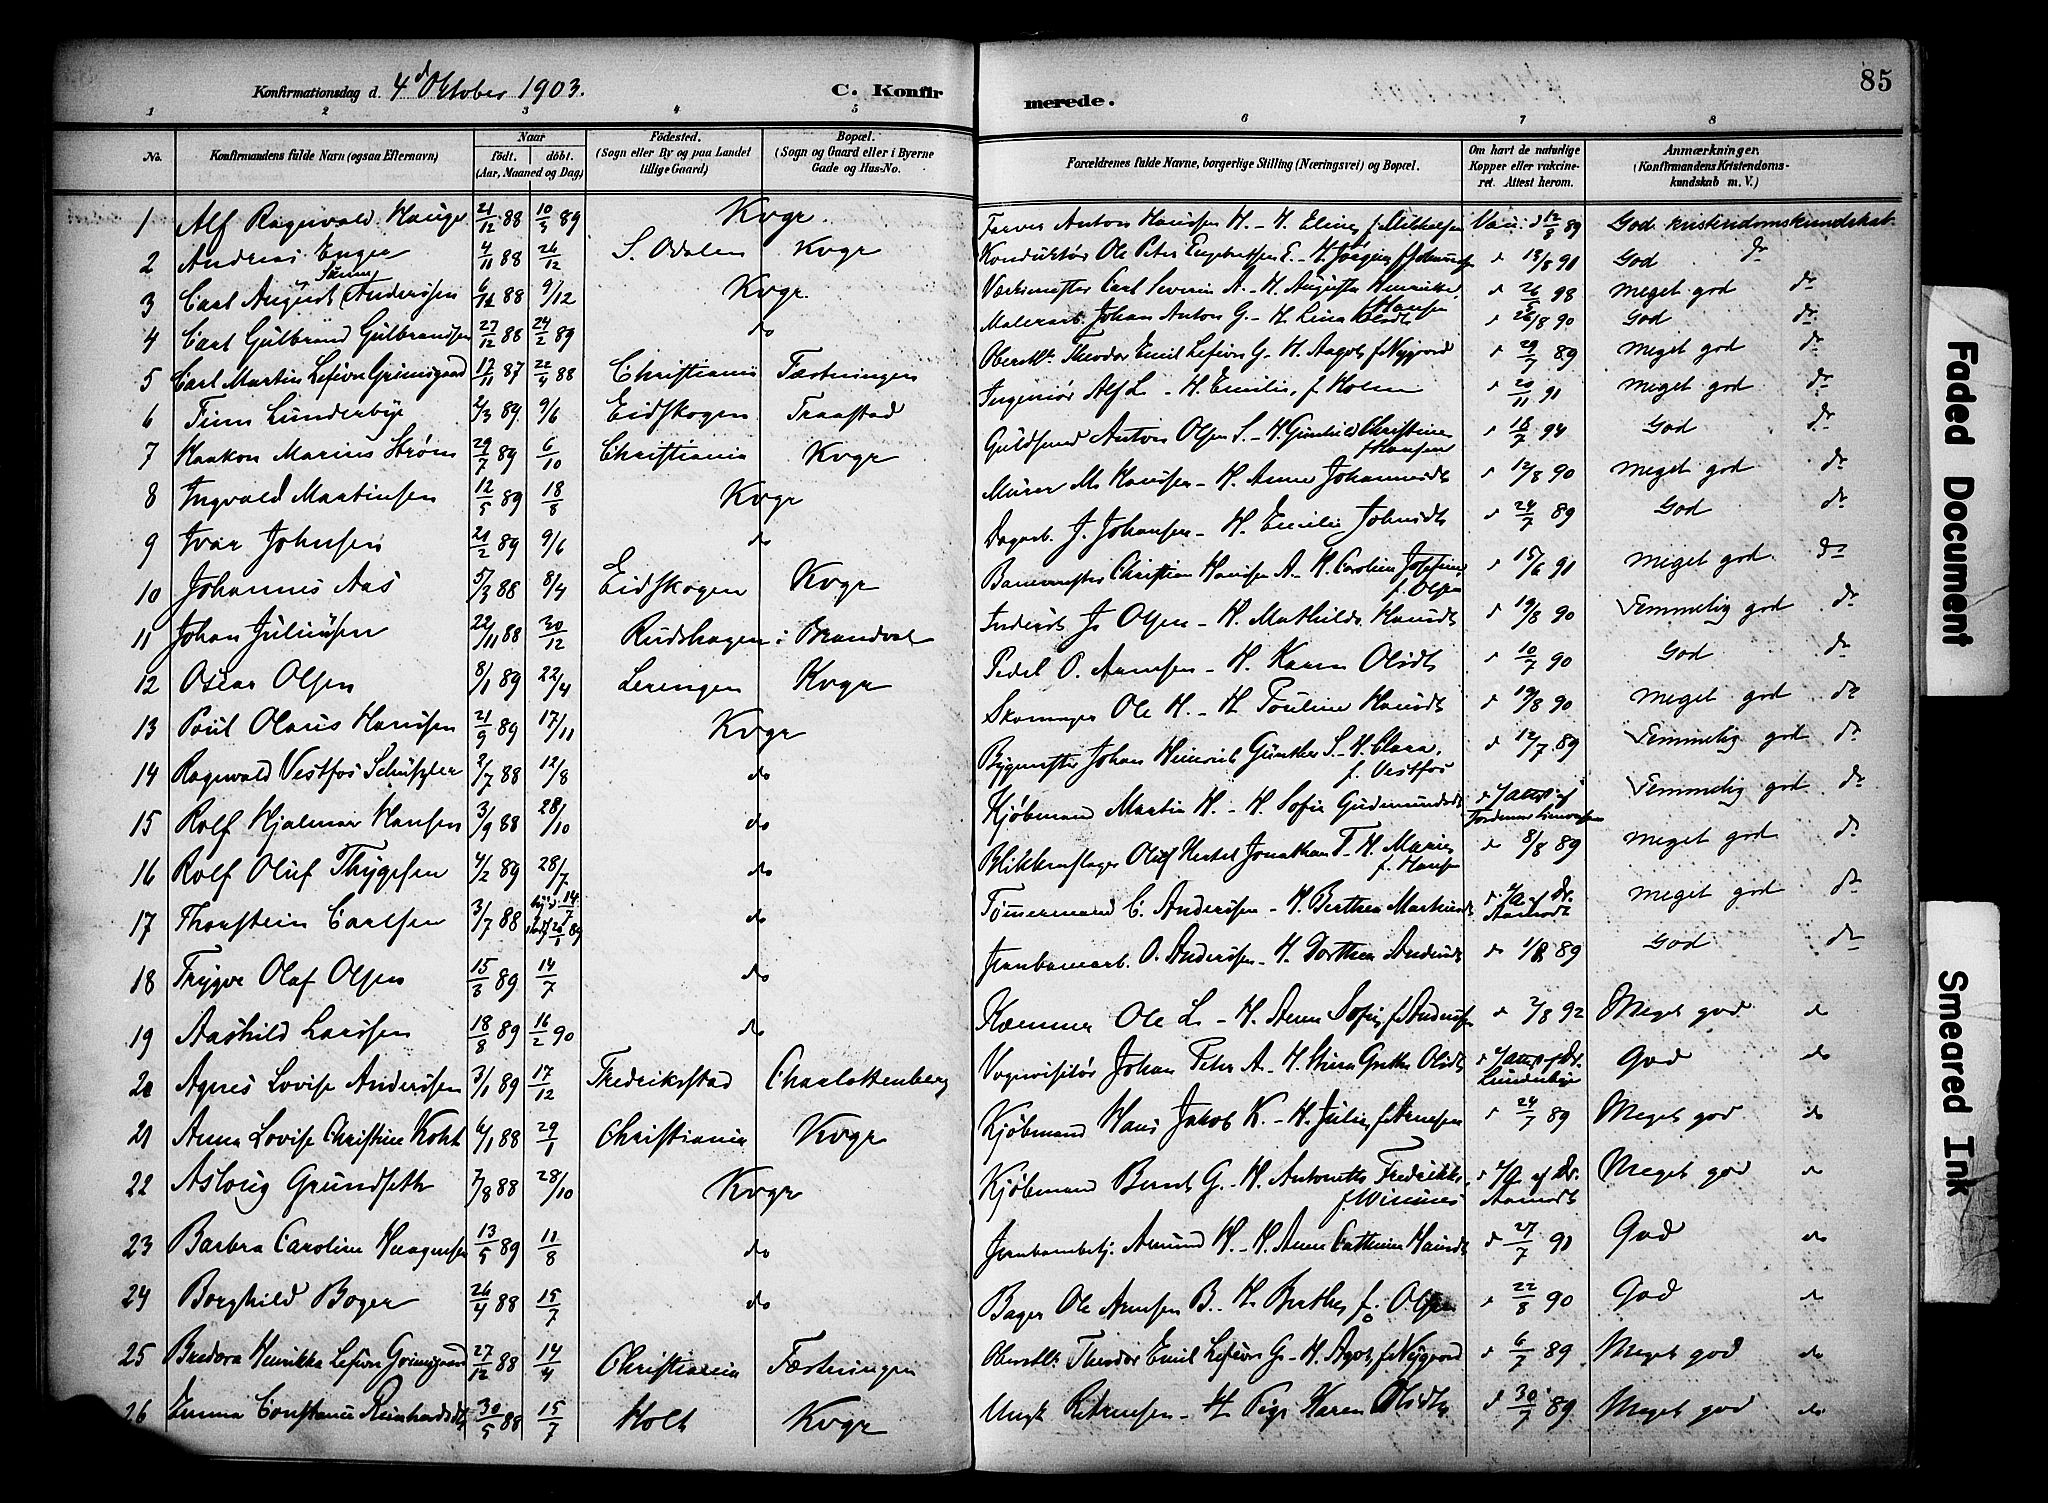 Konfirmationsdag d. 4d Oktober 1903. C. Konfirmerede. 85
1 2 3 4 5 6 7 8
No. Konfirmandens fulde Navn (ogsaa Efternavn) Naar født. døbt. (Aar, Maaned og Dag) Fødested. (Sogn eller By og paa Landet tillige Gaard) Bopæl. (Sogn og Gaard eller i Byerne Gade og Hus-No. Forældrenes fulde Navne, borgerlige Stilling (Næringsvei) og Bopæl. Om havt de naturlige Kopper eller vakcineret. Attest herom. Anmærkninger. (Konfirmandens Kristendomskundskab m. V.)
1 Alf Ragnvald Hauge 21/12 88 10/3 89 Kvgr. Anton Hansen H. - H. Vac. d 12/8 89 God kristendomskundskab.
2 Andreas Enger 4/11 88 26/12 S. Odalen Kvgr Konduktør Ole Peter Engebretsen E. - H. d 13/8 91 God do
3 Carl August Anderssen 6/11 88 9/12 Kvgr. Værksmester Carl Severin A. - H. Augusta Henrikke Hansen d 26/5 98 meget god do
4 Carl Gulbrand Gulbrandsen 27/12 88 24/2 89 do Malerarb. Johan Anton G. - H. Lina Olsdt d 26/8 90 God do
5 Carl Martin Lefson Grimsgaard 12/11 87 22/4 88 Christiania Fæstningen Oberstlt. Theodor Emil Lefson G. - H. Aagot f. Nygaard d 29/7 89 meget god do
6 Finn Lunderbye 2/3 89 9/6 Eidskogen Traastad Ingeniør Alf L. - H. Emilie, f. Holm d 20/11 91 meget god do
7 Haakon Marius Strøm 29/7 89 6/10 Christiania Kvgr Guldsmed Anton Olsen S. - H. Gunhild Christine f. Hansen d 16/7 94 God do
8 Ingvald Martinsen 12/5 89 18/8 Kvgr Murer M. Hansen - H. Anne Johannesdt d 12/8 90 meget god do
9 Ivar Johnsen 21/2 89 9/6 do Dagarb. J. Johansen - H. Emilie Johnsdt d 24/7 89 God do
10 Johannes Aas 5/3 88 8/4 Eidskogen Kvgr Banemester Christian Hansen A. - H. Caroline f. Olsen d 15/6 91 meget god do
11 Johan Juliussen 22/11 88 30/12 Rudshagen i Brandval J. Olsen - H. Mathilde Hansdt d 19/8 90 Temmelig god do
12 Oscar Olsen 8/1 89 22/4 Leringen Kvgr Pedel O. Arnesen - H. Karen Olsdt d 10/7 90 God do
13 Poul Olaus Hansen 21/9 89 17/11 Kvgr Skomager Ole H. - H. Pouline Hansdt d 19/8 90 meget god do
14 Ragnvald Vestfos Schüssler 2/7 88 12/8 do Bygmester Johan Heinrich Günther S. - H. Clara f. Vestfos d 12/7 89 Temmelig god do
15 Rolf Hjalmar Hansen 3/9 88 28/10 do Kjøbmand Martin H. - H. Sofie Gudmundsdt d Temmelig god do
16 Rolf Oluf Thygesen 4/2 89 28/7 do Blikkenslager Oluf Hertel Jonathan T. - H. Marie f. Hansen d 8/8 89 meget god do
17 Thorstein Carlsen 3/7 88 do Tømmermand C. Anderssen - H. Berthea d /A. af Dr. Aamodt meget god do
18 Trygve Olaf Olsen 15/3 89 14/7 do Jernbanearb. O. Anderssen - H. Dorthea d 1/8 89 God do
19 Aashild Larssen 18/8 89 16/2 90 do Kæmner Ole L. - H. Anne Sofie, f. d 2/8 92 Meget god do
20 Agnes Lovise Anderssen 3/1 89 17/12 Fredriksstad Charlottenberg Vognvisitør Johan Peter A. - H. Stina Grethe Olsdt d /Attest af Dr. Lunderbye God do
21 Anna Lovise Christine Koht 6/1 88 29/1 Christiania Kvgr Kjøbmand Hans Jakob K. - H. Julie, f. Arnesen d 24/7 89 Meget god do
22 Aslaug Grundseth 2/8 88 28/10 Kvgr Kjøbmand Bernt G. - H. Antonette Fredrikke, f. d /A. af Dr. Aamodt Meget god do
23 Barbra Caroline Haagensen 13/5 89 11/8 do Jernbanebetj. Amund H. - H. Anne Cathrine Hansdt d 27/7 91 God do
24 Borghild Boger 26/4 88 15/7 do Bager Ole Arnesen B. - H. Berthe, f. Olsen d 22/8 90 God do
25 Bredora Henrikka Lefson Grimsgaard 27/12 88 14/4 Christiania Fæstningen Oberstlt. Theodor Emil Lefson G. - H. Agot, f. Nygaard d 6/7 89 Meget god do
26 Emma Constance Reinhardsdt 30/5 88 15/7 Holt Kvgr Ungk. - Pige Karen Olsdt d 30/7 89 Meget god do
Faded Document
Smeared Ink